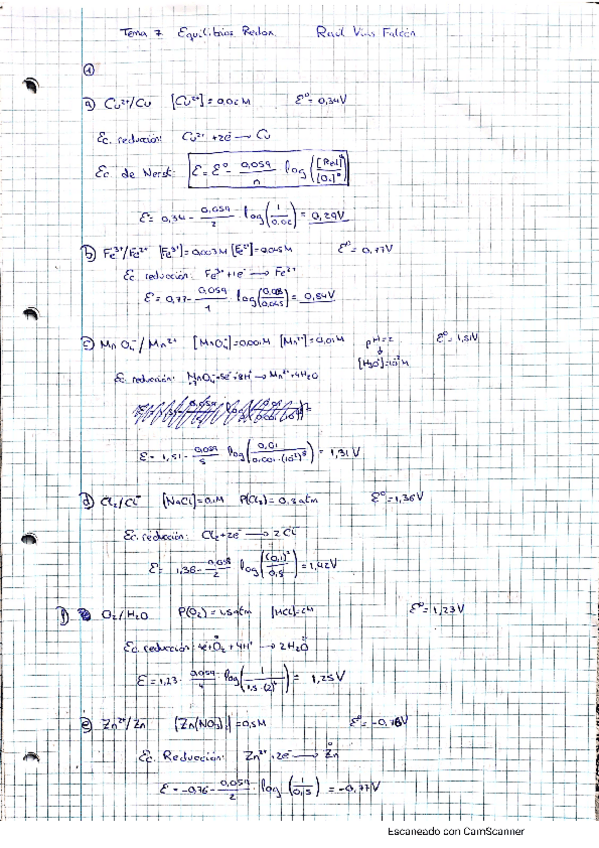 Tema 7 Equilibrios Redox Raúl Vivas Falcón
①
a) Cu²⁺/Cu [Cu²⁺]=0,06M ε⁰=0,34V
Ec. reducción: Cu²⁺+2e⁻ → Cu
Ec de Nerst: ε=ε⁰ - 0,059/n log([Red]/[Ox])
ε=0,34 - 0,059/2 · log(1/0,06) = 0,29V
b) Fe³⁺/Fe²⁺ ε⁰=0,77V
Ec. reducción: Fe³⁺+1e⁻ → Fe²⁺
ε=0,77 - 0,059/1 log
c) MnO₄⁻/Mn²⁺ [MnO₄⁻]=0,001M [Mn²⁺]=0,01M pH=2 ε⁰=1,51V
[H₃O⁺]=10⁻²M
Ec. reducción: MnO₄⁻+5e⁻+8H⁺ → Mn²⁺+4H₂O
ε=1,51 - 0,059/5 log(0,01/0,001·(10⁻²)⁸) = 1,31V
d) Cl₂/Cl⁻ [NaCl]=0,1M ε⁰=1,36V
Ec. reducción: Cl₂+2e⁻ → 2Cl⁻
ε=1,36 - 0,059/2 log = 1,42V
f) O₂/H₂O P(O₂)=1,5atm ε⁰=1,23V
Ec. reducción: 4e⁻+O₂+4H⁺ → 2H₂O
ε=1,23 - 0,059/4 · log(1/1,5·(2)⁴) = 1,25V
e) Zn²⁺/Zn [Zn(NO₃)₂]=0,5M ε⁰=-0,76V
Ec. Reducción: Zn²⁺+2e⁻ → Zn
ε=-0,76 - 0,059/2 · log(1/0,5) = -0,77V
Escaneado con CamScanner